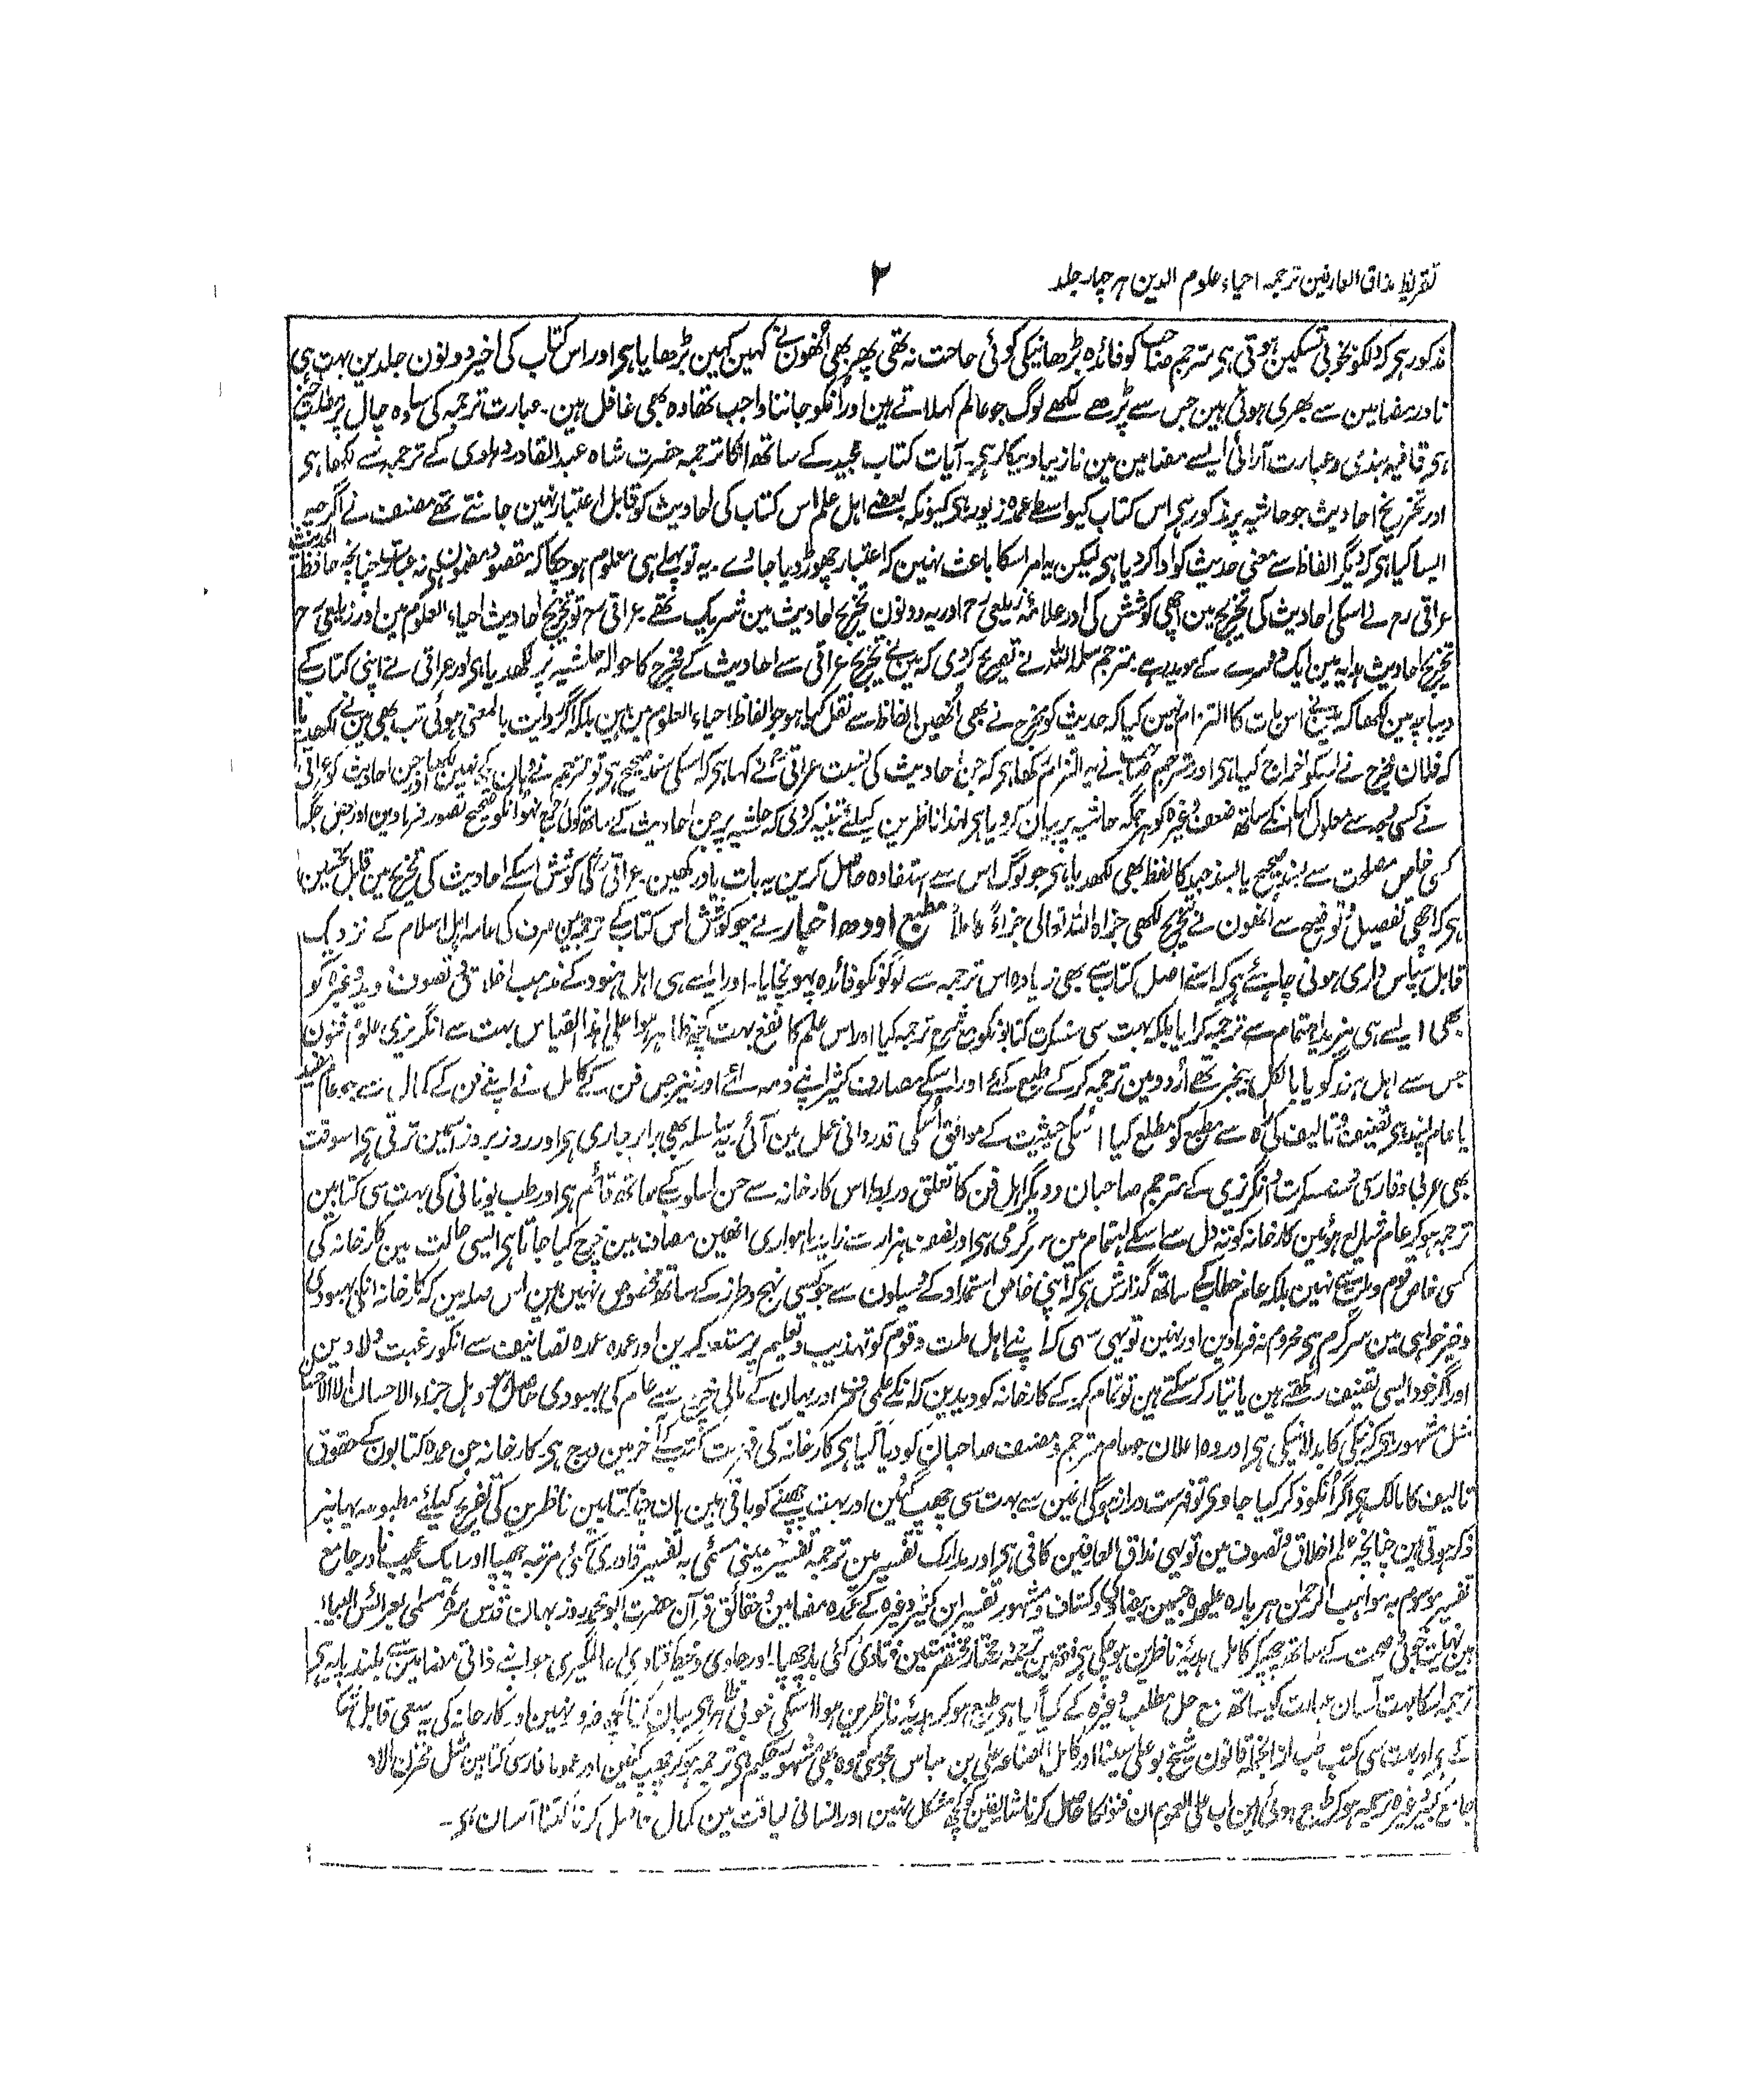 تقریظ مذاق العارفین ترجمہ احیاء علوم الدین ہر چہار جلد
۲
مذکور ہی کہ دلکو بخوبی تسکین ہوتی ہی مترجم صاحب کو فائدہ بڑھانیکی کوئی حاجت نہ تھی پھر بھی اُنھون نے کہین کہین بڑھایا ہی اور اس کتاب کی اخیر دونون جلدین بہت ہی
نادر مضامین سے بھری ہوئی ہین جس سے پڑھے لکھے لوگ جو عالم کہلاتے ہین اور اُنکو جاننا واجب تھا وہ بھی غافل ہین ۔ عبارت ترجمہ کی سادہ چال پر
ہی قافیہ بندی و عبارت آرائی ایسے مضامین مین نازیبا و بیکار ہی ۔ آیات کتاب مجید کے ساتھ انکا ترجمہ حضرت شاہ عبدالقادر دہلوی کے ترجمہ سے لکھا ہی
اور تخریج احادیث جو حاشیہ پر مذکور ہی اس کتاب کیواسطے عمدہ زیور ہی کیونکہ بعضے اہل علم اس کتاب کی احادیث کو قابل اعتبار نہین جانتے تھے مصنف نے اگرچہ
ایسا کیا ہی کہ دیگر الفاظ سے معنی حدیث کو ادا کردیا ہی لیکن یہ امر اسکا باعث نہین کہ اعتبار چھوڑ دیا جائے ۔ یہ تو پہلے ہی معلوم ہو چکا کہ مقصود مضمون ہی نہ عبارت چنانچہ حافظ الحدیث
عراقی رح نے اسکی احادیث کی تخریج مین اچھی کوشش کی اور علامہ زیلعی رح اور یہ دونون تخریج احادیث مین شریک تھے ۔ عراقی رح تو تخریج احادیث احیاء العلوم مین اور زیلعی رح
تخریج احادیث ہدایہ مین ایک دوسرے کے موید رہے ۔ مترجم سلمہ اللہ نے تصریح کردی کہ مین نے تخریج عراقی سے احادیث کے مخرج کا حوالہ حاشیہ پر لکھدیا ہی اور عراقی نے اپنی کتاب کے
دیباچہ مین لکھا کہ مینے اس بات کا التزام نہین کیا کہ حدیث کو مخرج نے بھی اُنھین الفاظ سے نقل کیا ہو جو الفاظ احیاء العلوم مین ہین بلکہ اگر روایت بالمعنی ہوئی تب بھی مین نے لکھدیا
کہ فلان مخرج نے اسکو اخراج کیا ہی اور مترجم صاحب نے یہ التزام رکھا ہی کہ جن احادیث کی نسبت عراقی رح نے کہا ہی کہ اسکی سند صحیح ہی تو مترجم نے وہان کچھ نہین لکھا اور جن احادیث کو عراقی
نے کسی وجہ سے معلول کہا انکے ساتھ ضعف وغیرہ کو ہر جگہ حاشیہ پر بیان کردیا ہی لہذا ناظرین کیلئے تنبیہ کردی کہ حاشیہ پر جن احادیث کے ساتھ کوئی جرح نہو اُنکو صحیح تصور فرماوین اور بعض جگہ
کسی خاص مصلحت سے بسند صحیح یا بسند جید کا لفظ بھی لکھدیا ہی جو لوگ اس سے استفادہ حاصل کرین یہ بات یاد رکھین ۔ عراقی رح کی کوشش اسکے احادیث کی تخریج مین قابل تحسین
ہی کہ اچھی تفصیل و توضیح سے اُنھون نے تخریج لکھی جزاہ اللہ تعالی جزاءً کاملاً مطبع اودھ اخبار نے جو کوشش اس کتاب کے ترجمہ مین صرف کی عامہ اہل اسلام کے نزدیک
قابل سپاس داری ہونی چاہئے ہی کہ اسنے اصل کتاب سے بھی زیادہ اس ترجمہ سے لوگونکو فائدہ پہونچایا ۔ اور ایسے ہی اہل ہنود کے مذہب اخلاق و تصوف وید وغیرہ کو
بھی ایسے ہی مزید اہتمام سے ترجمہ کرایا بلکہ بہت سی سنسکرت کتابونکو مع شرح ترجمہ کیا اور اس علم کا نفع بہت کچھ ظاہر ہوا علی ہذا القیاس بہت سے انگریزی علوم و فنون
جس سے اہل ہند گویا بالکل بیخبر تھے اُردو مین ترجمہ کرکے طبع کرائے اور اسکے مصارف کثیر اپنے ذمہ لئے اور نیز جس فن کے کامل نے اپنے فن کے کمال سے
یا عام پسند تصنیف و تالیف سے مطبع کو مطلع کیا اُسکی حیثیت کے موافق اُسکی قدردانی عمل مین آئی یہ سلسلہ بھی برابر جاری ہی اور روز بروز اسمین ترقی ہی اسوقت
بھی عربی و فارسی و سنسکرت و انگریزی کے مترجم صاحبان و دیگر اہل فن کا تعلق و ربط اس کارخانہ سے حسن اسلوب کے ساتھ قائم ہی اور طب یونانی کی بہت سی کتابین
ترجمہ ہوکر عام فہم ہوئین کارخانہ کو تہ دل سے اسکے اہتمام مین سرگرمی ہی اور ہزار سے زاید ماہواری انھین مصارف مین خرچ کیا جاتا ہی ایسی حالت مین کارخانہ کی
کسی خاص قوم و نہین بلکہ عام خطاب کے ساتھ گذارش ہی کہ اپنی خاص استمداد کے وسیلون سے جو کسی نہج و طرز کے ساتھ مخصوص نہین ہین اس صلہ مین کہ کارخانہ انکی بہبودی
و خیر خواہی مین سرگرم ہی محروم نہ فرماوین اور نہین تو یہی سہی کہ اپنے اہل ملت و قوم کو تہذیب و تعلیم پر مستعد کرین اور عمدہ عمدہ تصانیف سے انکو رغبت دلاوین
اور اگر خود ایسی تصنیف رکھتے ہین یا تیار کرسکتے ہین تو تمام کرکے کارخانہ کو دیدین کہ انکے علمی اور یہان کے مالی خرچ سے عام کی بہبودی حاصل ہو وہل جزاء الاحسان الا الاحسان
مثل مشہور ہی کہ نیکی کا بدلا نیکی ہی اور وہ اعلان جو عام مترجم و مصنف صاحبان کو دیا گیا ہی کارخانہ کی فہرست کتب کے آخر مین درج ہی ۔ کارخانہ جن عمدہ کتابون کے حقوق
تالیف کا مالک ہی اگر اُنکو ذکر کیا جاوے تو فہرست دراز ہوگی انمین سے بہت سی چھپ گئین اور بہت چھپنے کو باقی ہین ہان چند کتابین ناظرین کی تفریح کیلئے مطبوعہ یہانپر
ذکر ہوتی ہین چنانچہ علم اخلاق و تصوف مین تو یہی مذاق العارفین کافی ہی اور مدارک تفسیر مین ترجمہ تفسیر حسینی مسمی بہ تفسیر قادری کئی مرتبہ چھپا اور ایک عجیب نادر جامع
تفسیر موسوم بہ مواہب الرحمن ہر پارہ علیحدہ جسمین بیضاوی و کشاف و مشہور تفسیر ابن کثیر وغیرہ کے عمدہ مضامین و حقائق قرآن حضرت ابو محمد روزبہان قدس سرہ مسمی بعرائس البیان
ہین نہایت خوبی صحت کے ساتھ چھپکر کامل ہدیۂ ناظرین ہو چکی ہی فقہ مین ترجمہ در مختار فتاوی کئی بار چھپا ۔ اور حاوی و محیط فتاوی عالمگیری جو اپنے ذاتی مضامین سے بلند پایہ ہی
ترجمہ اسکا بہت آسان عبارت کیساتھ مع حل مطلب وغیرہ کے کیا گیا ہی طبع ہوکر ہدیۂ ناظرین ہوا اسکی خوبی ظاہر ہی بیان کرنا کچھ ضرور نہین اور کارخانہ کی یہ سعی قابل
کے ہی اور بہت سی کتب طب از انجملہ قانون شیخ بو علی سینا اور کامل الصناعہ علی بن عباس مجوسی کہ وہ بھی مشہور حکیم ہی ترجمہ ہوکر چھپ گئین اور عموما فارسی کتابین مثل مخزن
جامع کبیر وغیرہ ترجمہ ہوکر طبع ہوئی ہین اب علی العموم ان فنون کا حاصل کرنا شائقین کو کچھ مشکل نہین اور انسانی لیاقت مین کمال حاصل کرنا کتنا آسان ہی ۔